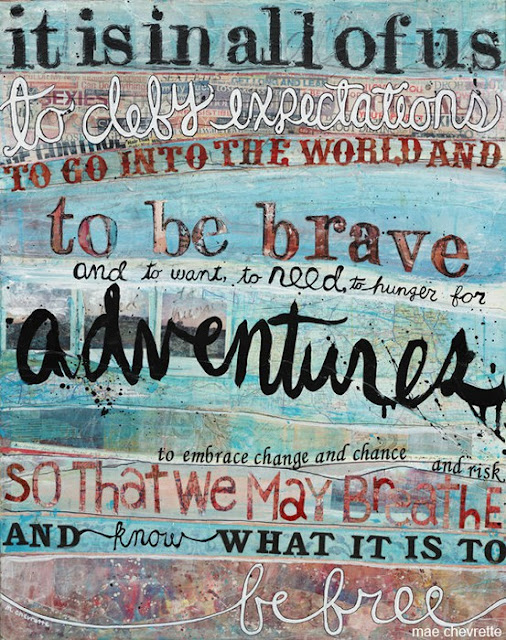 it is in all of us
to defy expectations
TO GO INTO THE WORLD AND
to be brave
and to want, to need, to hunger for
adventures.
to embrace change and chance
and risk
SO THAT WE MAY BREATHE
AND know WHAT IT IS TO
be free
m. chevrette
mae chevrette